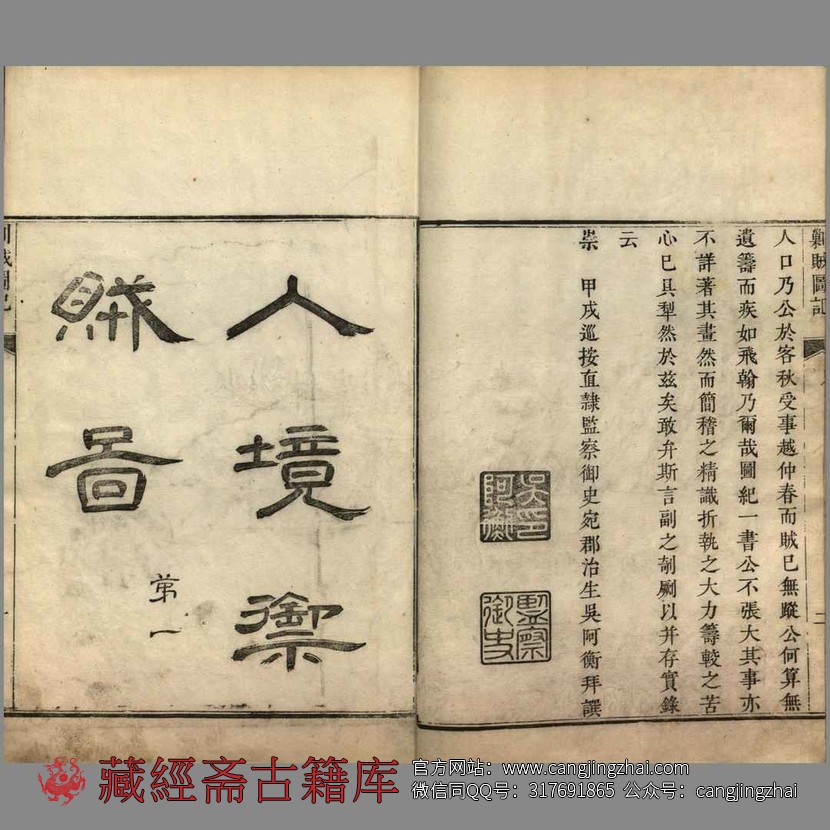 勦賊圖記
二
人口乃公於客秋受事越仲春而賊已無蹤公何算無
遺籌而疾如飛翰乃爾哉圖紀一書公不張大其事亦
不詳著其畫然而簡稽之精識折執之大力籌較之苦
心已具犁然於兹矣敢弁斯言副之剞劂以并存實錄
云
崇　甲戌巡按直隸監察御史宛郡治生吳阿衡拜譔
吳印阿衡
監察御史
入境禦
賊圖
第一
藏經斋古籍库
官方网站：www.cangjingzhai.com
微信同QQ号：317691865 公众号：cangjingzhai